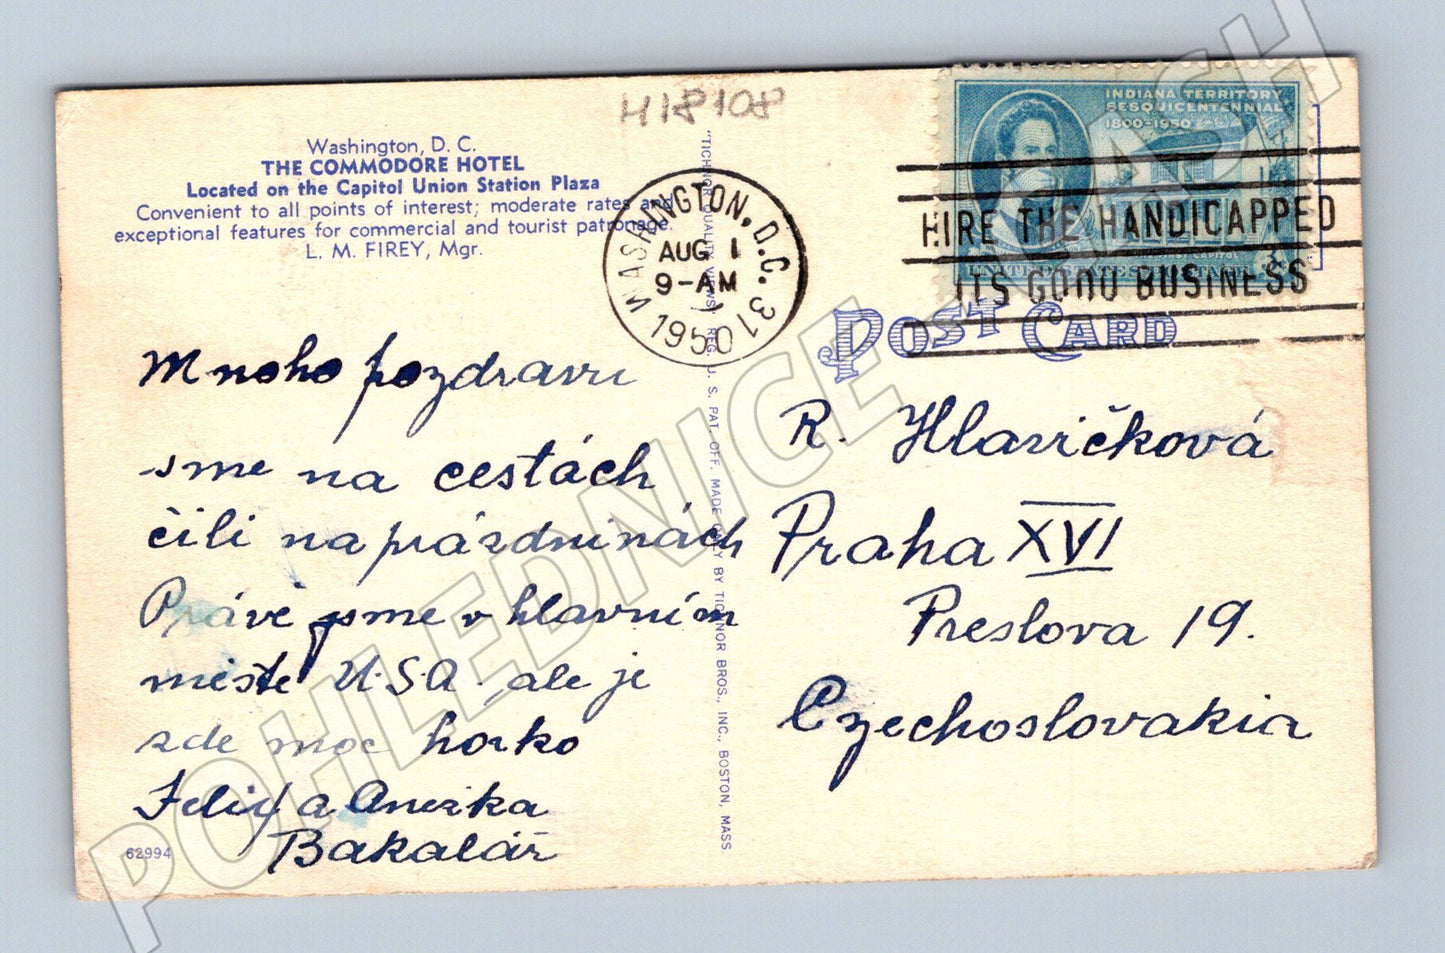 H18108
Washington, D. C.
THE COMMODORE HOTEL
Located on the Capitol Union Station Plaza
Convenient to all points of interest; moderate rates and
exceptional features for commercial and tourist patronage.
L. M. FIREY, Mgr.
WASHINGTON, D.C. 31
AUG 1
9-AM
1950
INDIANA TERRITORY
SESQUICENTENNIAL
1800-1950
HIRE THE HANDICAPPED
ITS GOOD BUSINESS
POST CARD
Mnoho pozdravu
sme na cestách
čili na prázdninách
Právě jsme v hlavním
městě U.S.A. ale je
zde moc horko
Felix a Anežka
Bakalář
62994
"TICHNOR QUALITY VIEWS," REG. U. S. PAT. OFF. MADE ONLY BY TICHNOR BROS., INC., BOSTON, MASS.
R. Hlavičková
Praha XVI
Preslova 19.
Czechoslovakia
POHLEDNICE